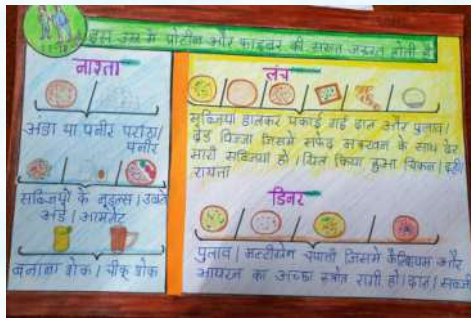 11-18
इस उम्र में प्रोटीन और फाइबर की सख्त जरुरत होती है
नाश्ता
अंडा या पनीर परांठा/
पनीर
सब्जियों के नूडल्स/उबले
अंडे/आमलेट
बनाना शेक/चीकू शेक
लंच
सब्जियां डालकर पकाई गई दाल और पुलाव/
ब्रेड पिज्जा जिसमें सफेद मक्खन के साथ ढेर
सारी सब्जियां हो/ग्रिल किया हुआ चिकन/दही/
रायता
डिनर
पुलाव/मल्टीग्रेन चपाती जिसमें कैल्शियम और
आयरन का अच्छा स्त्रोत रागी हो/दाल/सब्जी